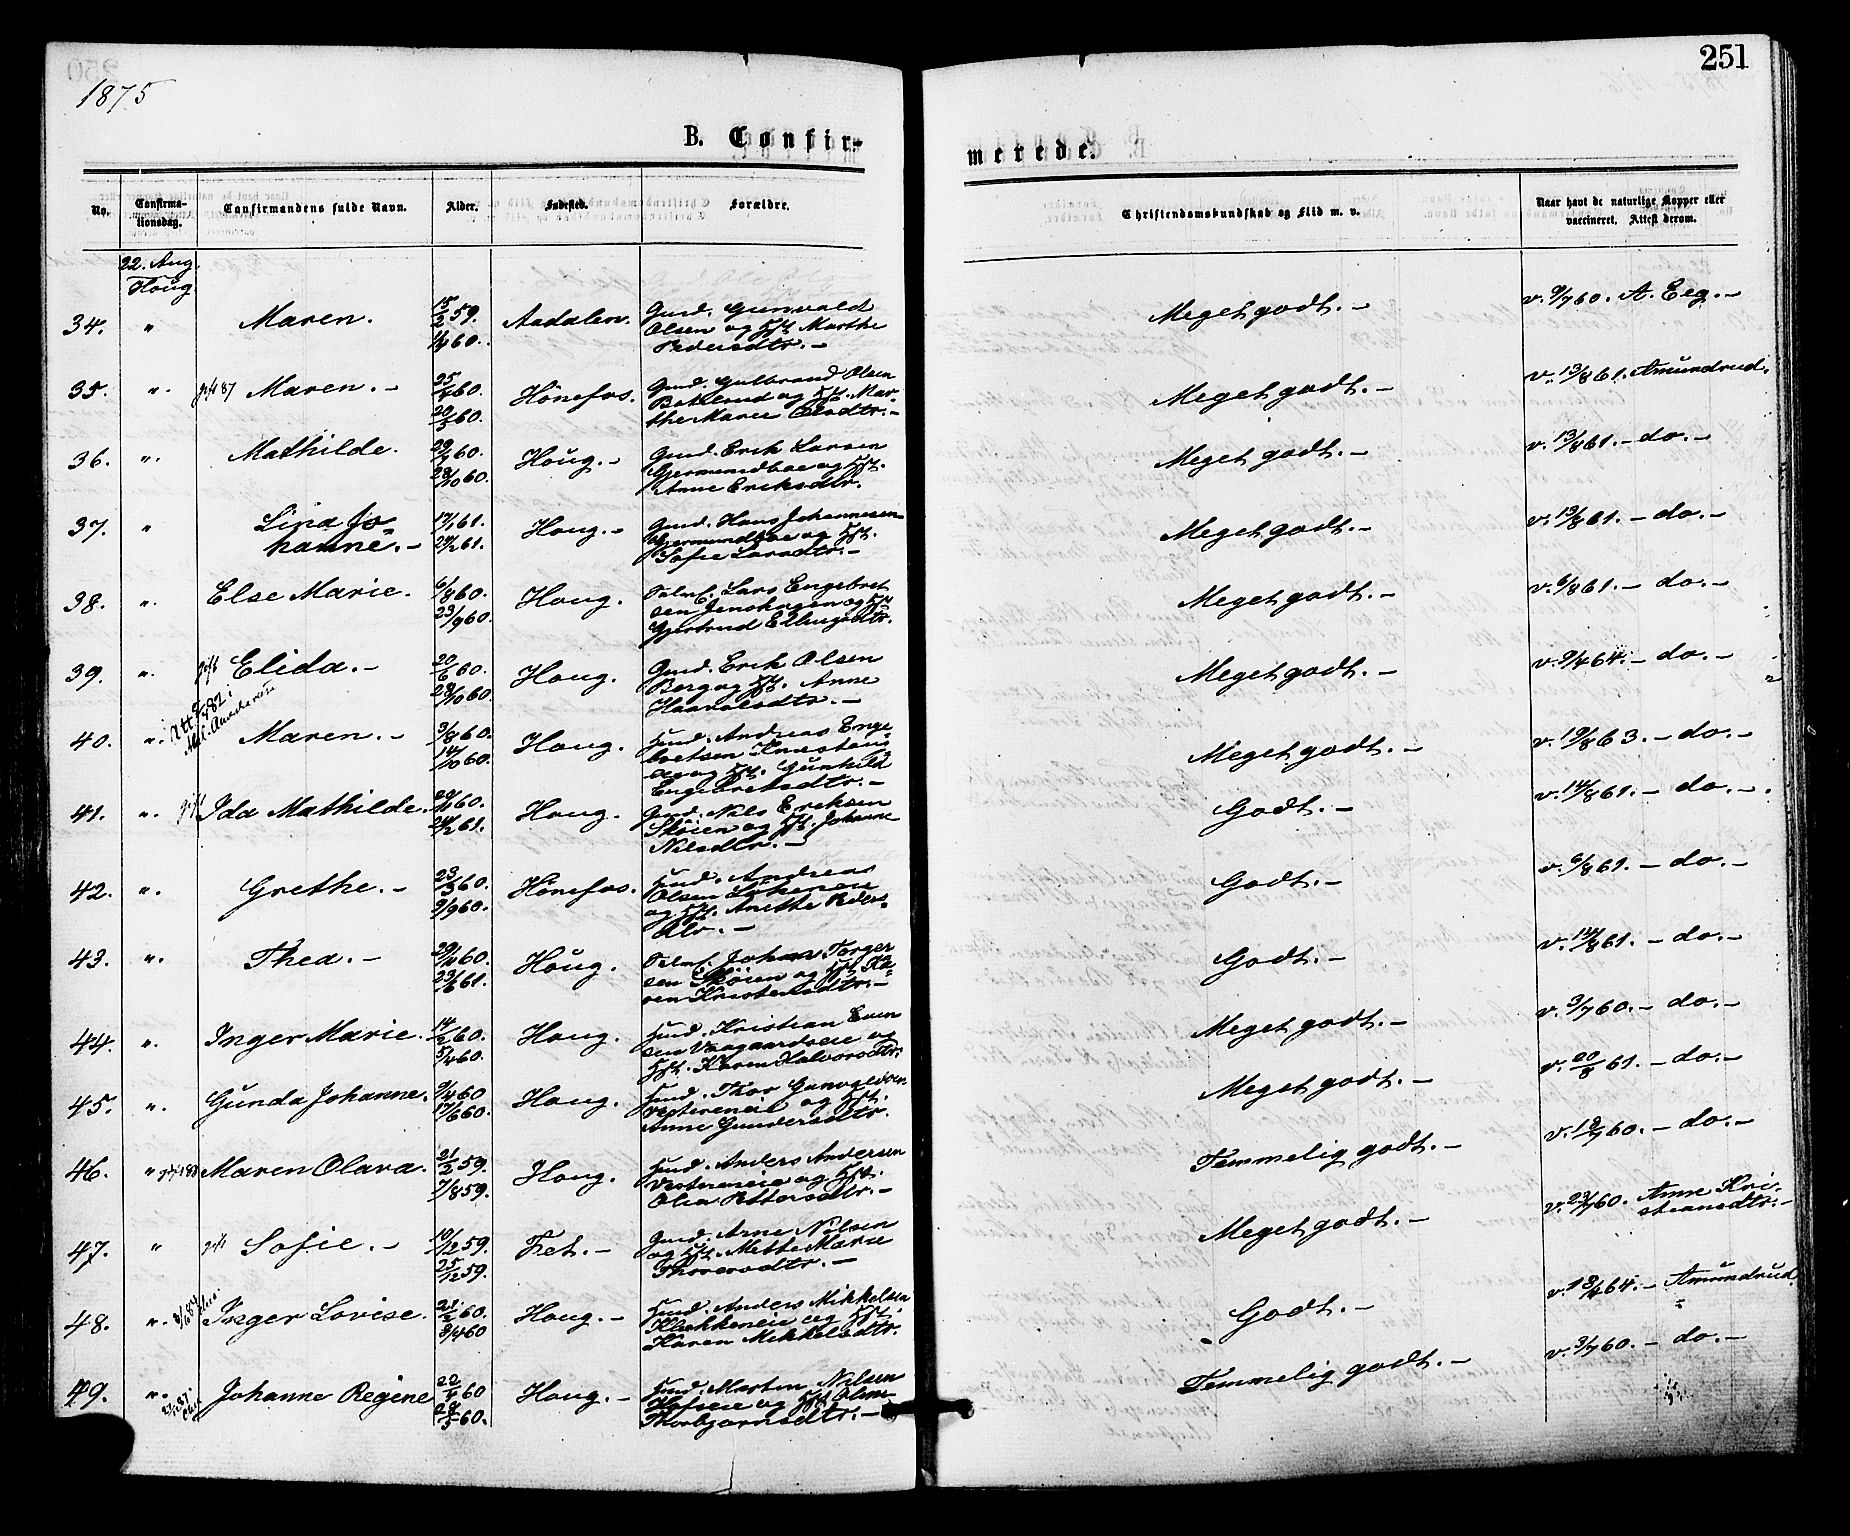 251
1875
B. Confir-
merede.
No.
Confirma-
tionsdag.
Confirmandens fulde Navn.
Alder.
Fødested.
Forældre.
Christendomskundskab og Flid m. v.
Naar havt de naturlige Kopper eller
vaccineret. Attest derom.
22. Aug.
Houg
34. " Maren. 15/2 59. 1/4 60. Aadalen. Gmd. Gunvald
Olsen og Hst. Marthe
Pedersdtr. –
Meget godt. – v. 9/7 60. A. Eeg. –
35. " gift 87 Maren. – 25/4 60. 20/5 60. Hönefos. Gmd. Gulbrand Olsen
og Hst. Mar-
the Marie Olsdtr. –
Meget godt. – v. 13/8 61. Amundrud.
36. " Mathilde. 28/10 60. Houg. – Gmd. Erik Larsen
Gjermundboe og Hst.
Anne Eriksdtr.
Meget godt. – v. 13/8 61. – do. –
37. " Lina Jo-
hanne. – 17/1 61. 24/2 61. Houg. – Gmd. Hans Johannesen
Gjermundboe og Hst.
Sofie Larsdtr. –
Meget godt. – v. 13/8 61. – do. –
38. " Else Marie. 6/8 60. 23/9 60. Houg. Lars Engebret
sen Jenshagen og Hst
Gjertrud Ellingsdtr.
Meget godt. – v. 6/8 61. – do. –
39. " gift Elida. – 20/6 60. 28/10 60. Houg. Gmd. Erik Olsen
Berg og Hst. Anne
Haavalsdtr. –
Meget godt. – v. 9/4 64. – do. –
40. " Maren. – 3/8 60. 14/10 60. Houg. Hmd. Andreas Enge-
bretsen
og Hst. Gunhild
Engebretsdtr. –
Meget godt. – v. 19/8 63. – do. –
41. " gift Ida Mathilde. 24/2 61. Houg. Gmd. Nils Eriksen
Sköien og Hst. Johanne
Nilsdtr. –
Godt. – v. 14/8 61. – do. –
42. " Grethe. – 23/3 60. 9/9 60. Hönefos. Hmd. Andreas
Olsen
og Hst. Anethe Peders-
dtr. –
Godt. – v. 6/8 61. – do. –
43. " Thea. – 23/6 61. Houg. Johan Torger
sen Sköien og Hst Ka-
ren Kristensdtr. –
Godt. – v. 14/8 61. – do. –
44. " Inger Marie. 14/2 60. 5/4 60. Houg. Hmd. Kristian Even
sen Vaagaardseie og
Hst. Karen Halvorsdtr.
Meget godt. – v. 3/7 60. – do. –
45. " Gunda Johanne. 9/4 60 17/6 60. Houg. Hmd. Thor Gunvaldsen
Vesterneie og Hst.
Anne Gundersdtr.
Meget godt. – v. 20/8 61. – do. –
46. " Maren Olava. 21/2 59. 7/8 59. Houg. Hmd. Anders Andersen
Vesterneie og Hst.
Olea Pettersdtr. –
Temmelig godt. – v. 12/7 60. – do. –
47. " gift Sofie. – 10/12 59. 25/12 59. Fet. – Gmd. Arne Nilsen
og Hst. Mette Marie
Thoresdtr. –
Meget godt. – v. 23/7 60. Anne Kri-
stiansdtr. –
48. " Inger Lovise. 21/2 60. 8/4 60 Houg. – Hmd. Anders Mikkelsen
Klokkereie og Hst.
Karen Mikkelsdtr.
Godt. – v. 18/4 64. – Amundrud.
49. " Johanne Regine 22/4 60 28/5 60. Houg. – Hmd. Morten Nilsen
Hofseie og Hst Oline
Thorbjørnsdtr. –
Temmelig godt. – v. 3/7 60. – do. –